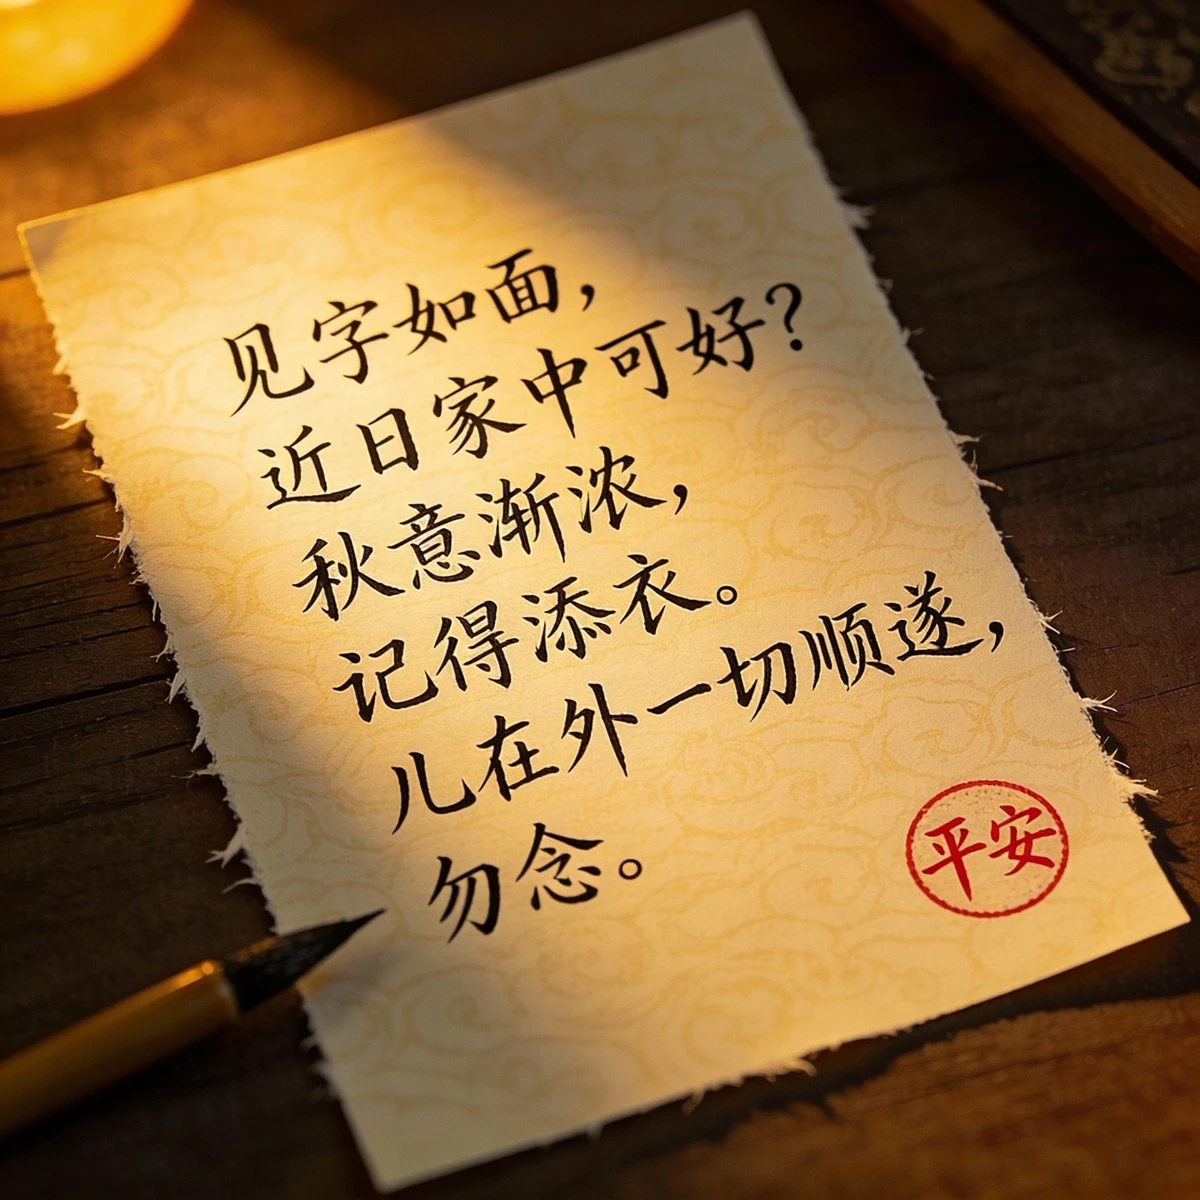 见字如面，
近日家中可好？
秋意渐浓，
记得添衣。
儿在外一切顺遂，
勿念。
平安